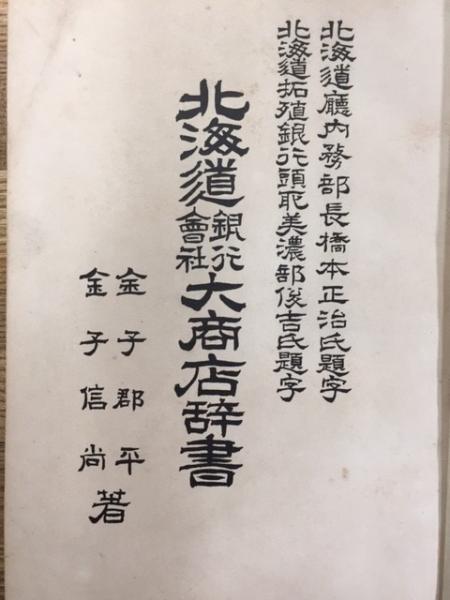 北海道廳内務部長橋本正治氏題字
北海道拓殖銀行頭取美濃部俊吉氏題字
北海道銀行會社大商店辞書
金子郡平
金子信尚
著